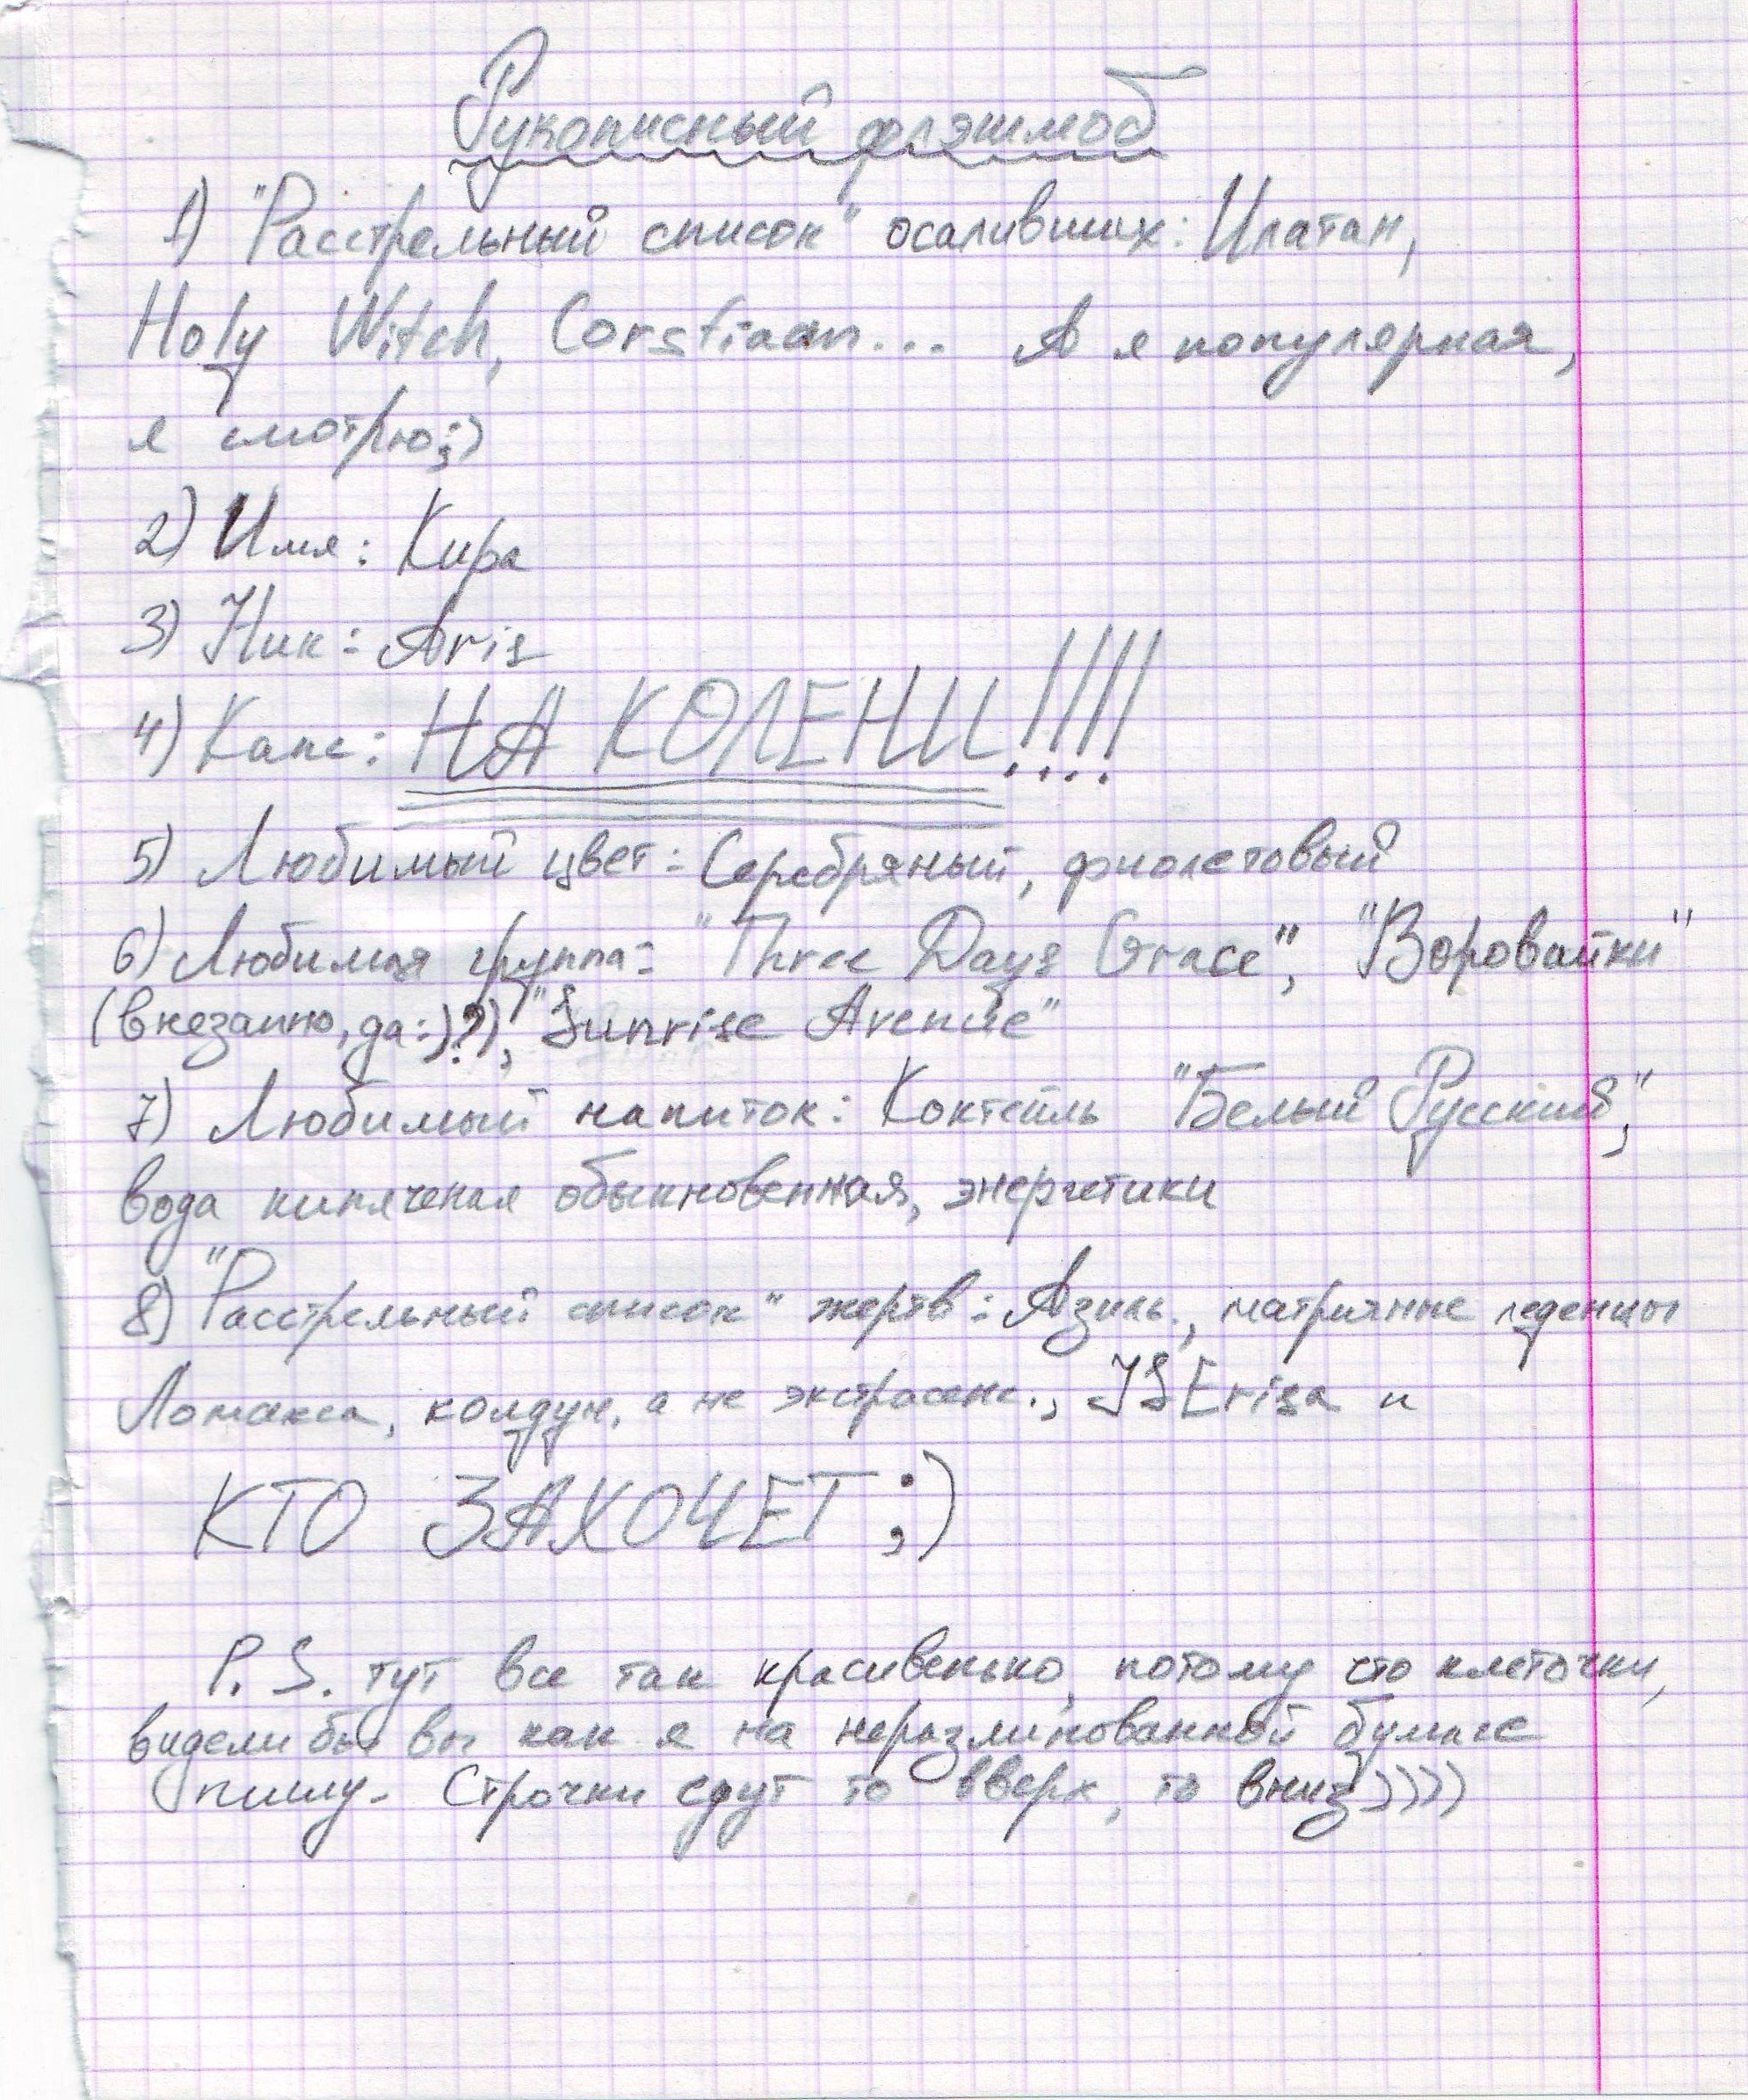 Рукописный флэшмоб
1) "Расстрельный список" осаливших: Илатан,
Holy Witch, Corstiaan... А я популярная,
я смотрю ;)
2) Имя: Кира
3) Ник: Aris
4) Капс: НА КОЛЕНИ!!!!
5) Любимый цвет: Серебряный, фиолетовый
6) Любимая группа: "Three Days Grace", "Воровайки"
(внезапно, да :)?), "Sunrise Avenue"
7) Любимый напиток: Коктейль "Белый Русский",
вода кипяченая обыкновенная, энергетики
8) "Расстрельный список" жертв: Азиль., матричные леденцы
Ломакса, колдун, а не экстрасенс., JSErisa и
КТО ЗАХОЧЕТ ;)
P.S. тут все так красивенько, потому что клеточки,
видели бы вы как я на неразлинованной бумаге
пишу. Строчки едут то вверх, то вниз))))